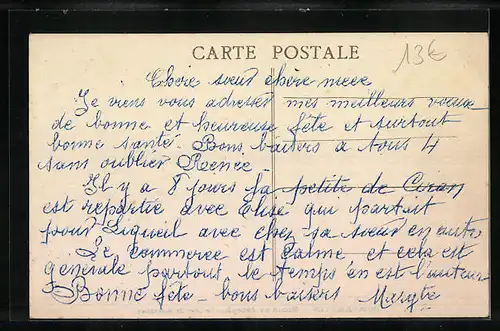 CARTE POSTALE
13€
Chère sœur chère niece
Je viens vous adresser mes meilleurs voeux
de bonne et heureuse fête et surtout
bonne santé. Bons baisers a tous 4
sans oublier Renée
Il y a 8 jours la petite de Ciran
est repartie avec Elise qui partait
pour Ligueil avec chez sa sœur en auto
Le commerce est calme et cela est
générale partout le temps en est l'auteur
Bonne fête - bons baisers Margte